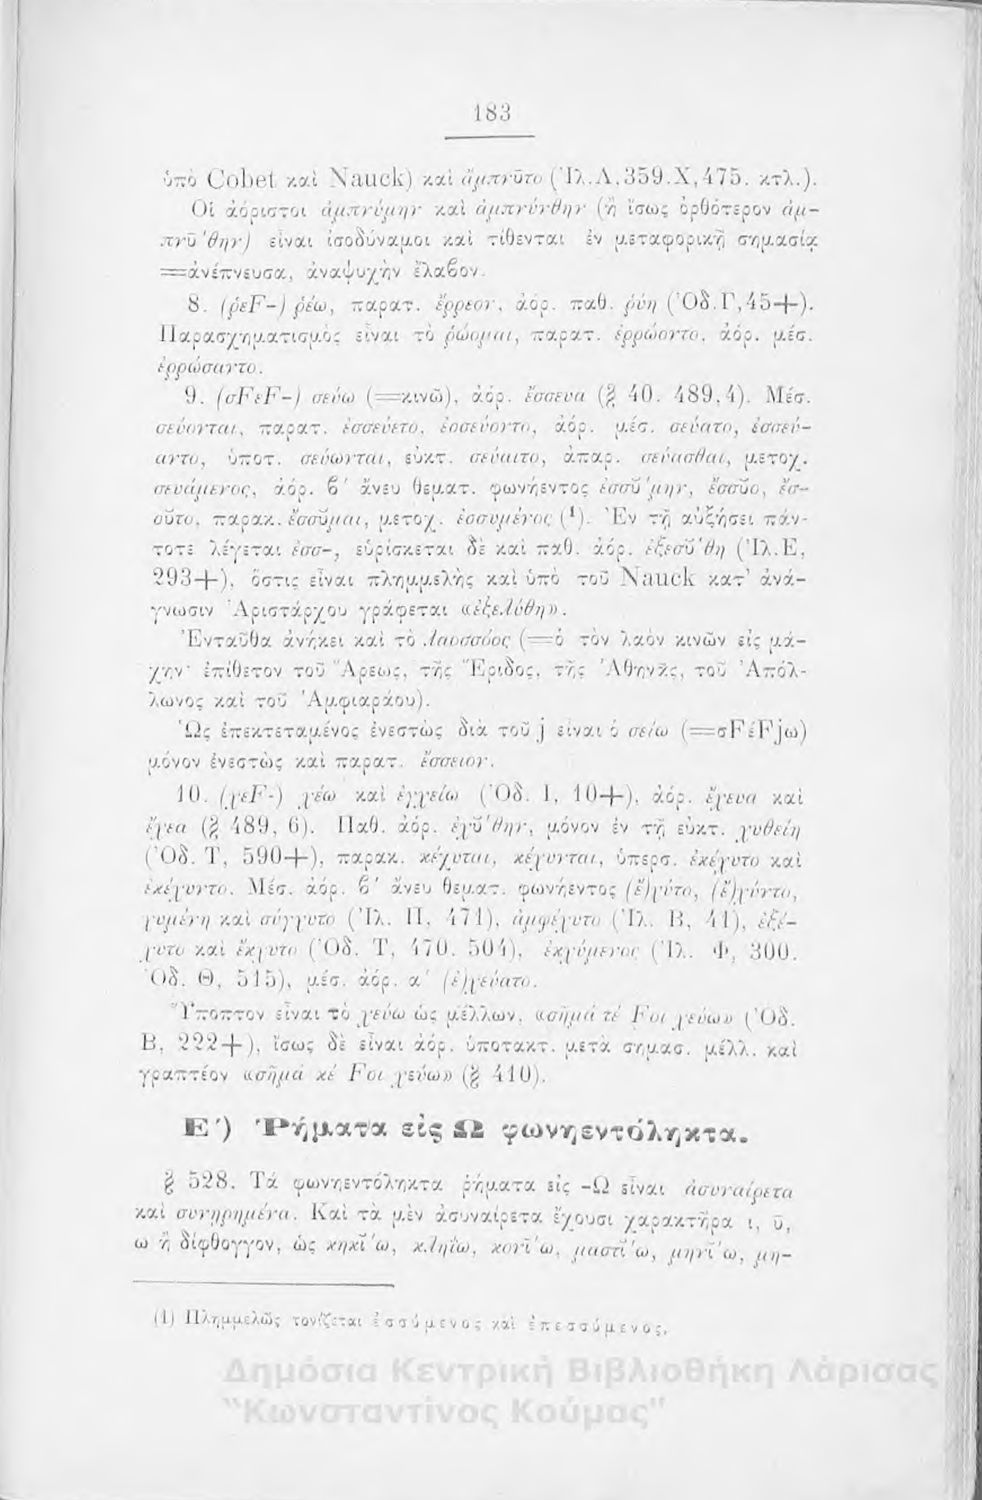 183
ὑπὸ Cobet καὶ Nauck) καὶ ἄμπνῡτο (Ἰλ.Λ,359.Χ,475. κτλ.).
Οἱ ἀόριστοι ἀμπνύμην καὶ ἀμπνύνθην (ἢ ἴσως ὀρθότερον ἀμ-
πνῡ́θην) εἶναι ἰσοδύναμοι καὶ τίθενται ἐν μεταφορικῇ σημασίᾳ
=ἀνέπνευσα, ἀναψυχὴν ἔλαβον.
8. (ῥεF-) ῥέω, παρατ. ἔρρεον, ἀόρ. παθ. ῥύη (Ὀδ.Γ,45+).
Παρασχηματισμὸς εἶναι τὸ ῥώομαι, παρατ. ἐρρώοντο, ἀόρ. μέσ.
ἐρρώσαντο.
9. (σFεF-) σεύω (=κινῶ), ἀόρ. ἔσσευα (§ 40. 489,4). Μέσ.
σεύονται, παρατ. ἐσσεύετο, ἐσσεύοντο, ἀόρ. μέσ. σεύατο, ἐσσεύ-
αντο, ὑποτ. σεύωνται, εὐκτ. σεύαιτο, ἀπαρ. σεύασθαι, μετοχ.
σευάμενος, ἀόρ. β΄ ἄνευ θεματ. φωνήεντος ἐσσῠ́μην, ἔσσῠο, ἔσ-
σῠτο, παρακ. ἔσσῠμαι, μετοχ. ἐσσυμένος (¹). Ἐν τῇ αὐξήσει πάν-
τοτε λέγεται ἐσσ-, εὑρίσκεται δὲ καὶ παθ. ἀόρ. ἐξεσῠ́θη (Ἰλ.Ε,
293+), ὅστις εἶναι πλημμελὴς καὶ ὑπὸ τοῦ Nauck κατ᾽ ἀνά-
γνωσιν Ἀριστάρχου γράφεται «ἐξελύθη».
Ἐνταῦθα ἀνήκει καὶ τὸ λαοσσόος (=ὁ τὸν λαὸν κινῶν εἰς μά-
χην· ἐπίθετον τοῦ Ἄρεως, τῆς Ἔριδος, τῆς Ἀθηνᾶς, τοῦ Ἀπόλ-
λωνος καὶ τοῦ Ἀμφιαράου).
Ὡς ἐπεκτεταμένος ἐνεστὼς διὰ τοῦ j εἶναι ὁ σείω (=σFέFjω)
μόνον ἐνεστὼς καὶ παρατ. ἔσσειον.
10. (χεF-) χέω καὶ ἐγχείω (Ὀδ. Ι, 10+), ἀόρ. ἔχευα καὶ
ἔχεα (§ 489, 6). Παθ. ἀόρ. ἐχῠ́θην, μόνον ἐν τῇ εὐκτ. χυθείη
(Ὀδ. Τ, 590+), παρακ. κέχυται, κέχυνται, ὑπερσ. ἐκέχυτο καὶ
ἐκέχυντο. Μέσ. ἀόρ. β΄ ἄνευ θεματ. φωνήεντος (ἔ)χύτο, (ἔ)χύντο,
χυμένη καὶ σύγχυτο (Ἰλ. Π, 471), ἀμφέχυτο (Ἰλ. Β, 41), ἐξέ-
χυτο καὶ ἔκχυτο (Ὀδ. Τ, 470. 504), ἐκχύμενος (Ἰλ. Φ, 300.
Ὀδ. Θ, 515), μέσ. ἀόρ. α΄ (ἐ)χεύατο.
Ὕποπτον εἶναι τὸ χεύω ὡς μέλλων, «σῆμά τέ Fοι χεύω» (Ὀδ.
Β, 222+), ἴσως δὲ εἶναι ἀόρ. ὑποτακτ. μετὰ σημασ. μέλλ. καὶ
γραπτέον «σῆμά κέ Fοι χεύω» (§ 410).
Ε΄) Ῥήματα εἰς Ω φωνηεντόληκτα.
§ 528. Τὰ φωνηεντόληκτα ῥήματα εἰς -Ω εἶναι ἀσυναίρετα
καὶ συνῃρημένα. Καὶ τὰ μὲν ἀσυναίρετα ἔχουσι χαρακτῆρα ι, υ,
ω ἢ δίφθογγον, ὡς κηκῑ́ω, κληΐω, κονῑ́ω, μαστῑ́ω, μηνῑ́ω, μη-
(1) Πλημμελῶς τονίζεται ἐσσύμενος καὶ ἐπεσσύμενος.
Δημόσια Κεντρική Βιβλιοθήκη Λάρισας
"Κωνσταντίνος Κούμας"